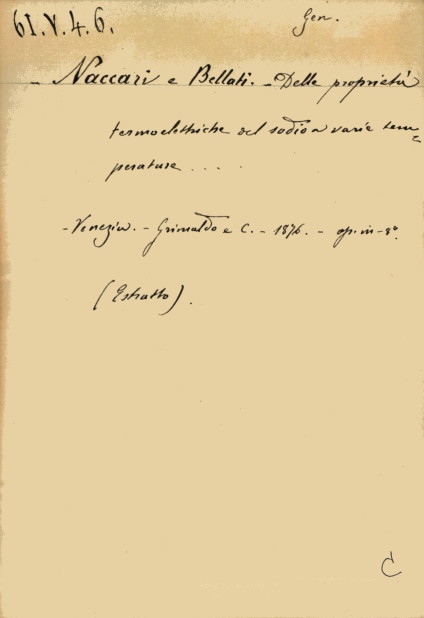 61.V.4.6.
Gen.
- Naccari e Bellati. - Delle proprietà
termoelettriche del sodio a varie tem=
perature . . . .
- Venezia. - Grimaldo e C. - 1876. - op. in-8°.
(Estratto).
C